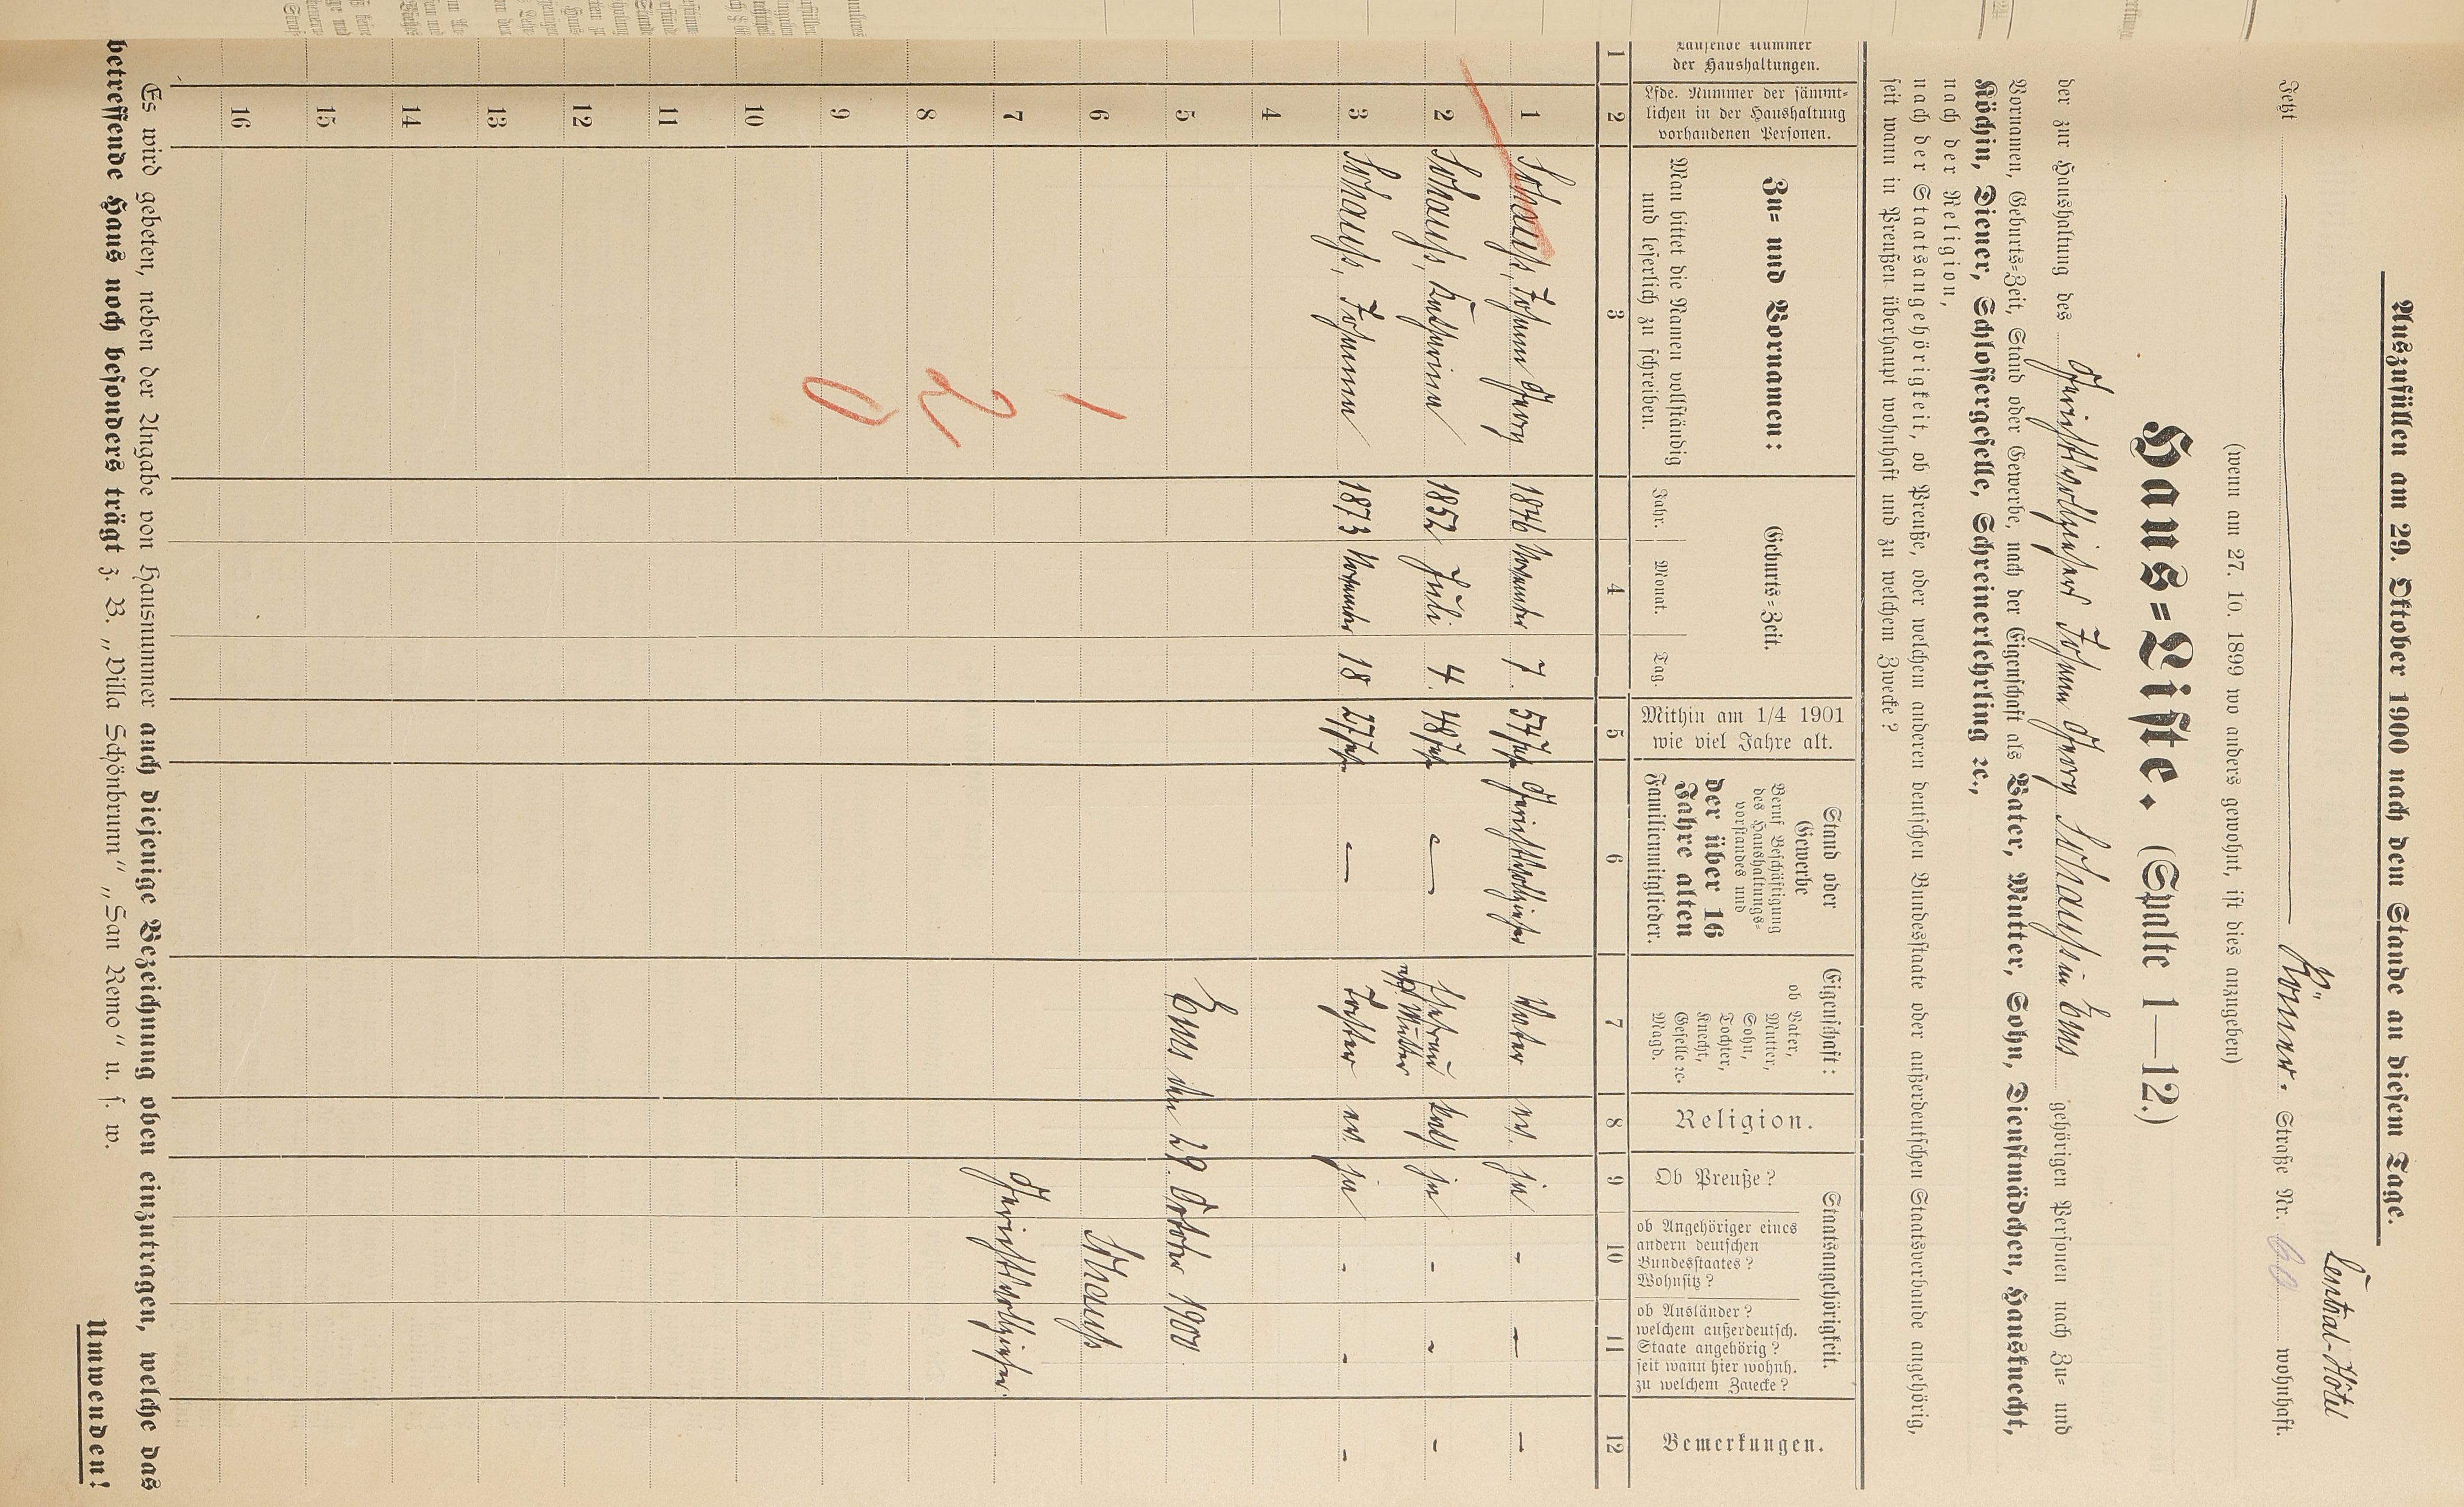 Auszufüllen am 29. Oktober 1900 nach dem Stande an diesem Tage.
Central-Hôtel
Jetzt Römer. Straße Nr. 60 wohnhaft.
(wenn am 27. 10. 1899 wo anders gewohnt, ist dies anzugeben)
Haus=Liste. (Spalte 1—12.)
der zur Haushaltung des Gerichtsvollziehers Johann Georg Schauß in Ems gehörigen Personen nach Zu= und
Vornamen, Geburts=Zeit, Stand oder Gewerbe, nach der Eigenschaft als Vater, Mutter, Sohn, Dienstmädchen, Hausknecht,
Köchin, Diener, Schlossergeselle, Schreinerlehrling ꝛc.,
nach der Religion,
nach der Staatsangehörigkeit, ob Preuße, oder welchem anderen deutschen Bundesstaate oder außerdeutschen Staatsverbande angehörig,
seit wann in Preußen überhaupt wohnhaft und zu welchem Zwecke?
Laufende Nummer
der Haushaltungen.
Lfde. Nummer der sämmt=
lichen in der Haushaltung
vorhandenen Personen.
Zu= und Vornamen:
Man bittet die Namen vollständig
und leserlich zu schreiben.
Geburts=Zeit.
Jahr. Monat. Tag.
Mithin am 1/4 1901
wie viel Jahre alt.
Stand oder
Gewerbe
Beruf Beschäftigung
des Haushaltungs=
vorstandes und
der über 16
Jahre alten
Familienmitglieder.
Eigenschaft:
ob Vater,
Mutter,
Sohn,
Tochter,
Knecht,
Geselle ꝛc.
Magd.
Religion.
Staatsangehörigkeit.
Ob Preuße?
ob Angehöriger eines
andern deutschen
Bundesstaates?
Wohnsitz?
ob Ausländer?
welchem außerdeutsch.
Staate angehörig?
seit wann hier wohnh.
zu welchem Zwecke?
Bemerkungen.
1 2 3 4 5 6 7 8 9 10 11 12
1 Schauß, Johann Georg 1846 November 7. Jahre Gerichtsvollzieher Vater ev. ja - — —
2 Schauß, Katharina 1852 Juli 4. 48 Jahre — Ehefrau Mutter kath ja - - -
3 Schauß, Johanna 1873 November 18 27 Jahre — Tochter ev. ja - - -
4
5 Ems den 29. October 1900
6 Schauß
7 Gerichtsvollzieher.
1
8
2
9
0
10
11
12
13
14
15
16
Es wird gebeten, neben der Angabe von Hausnummer auch diejenige Bezeichnung oben einzutragen, welche das
betreffende Haus noch besonders trägt z. B. „Villa Schönbrunn“ „San Remo“ u. s. w.
Umwenden!